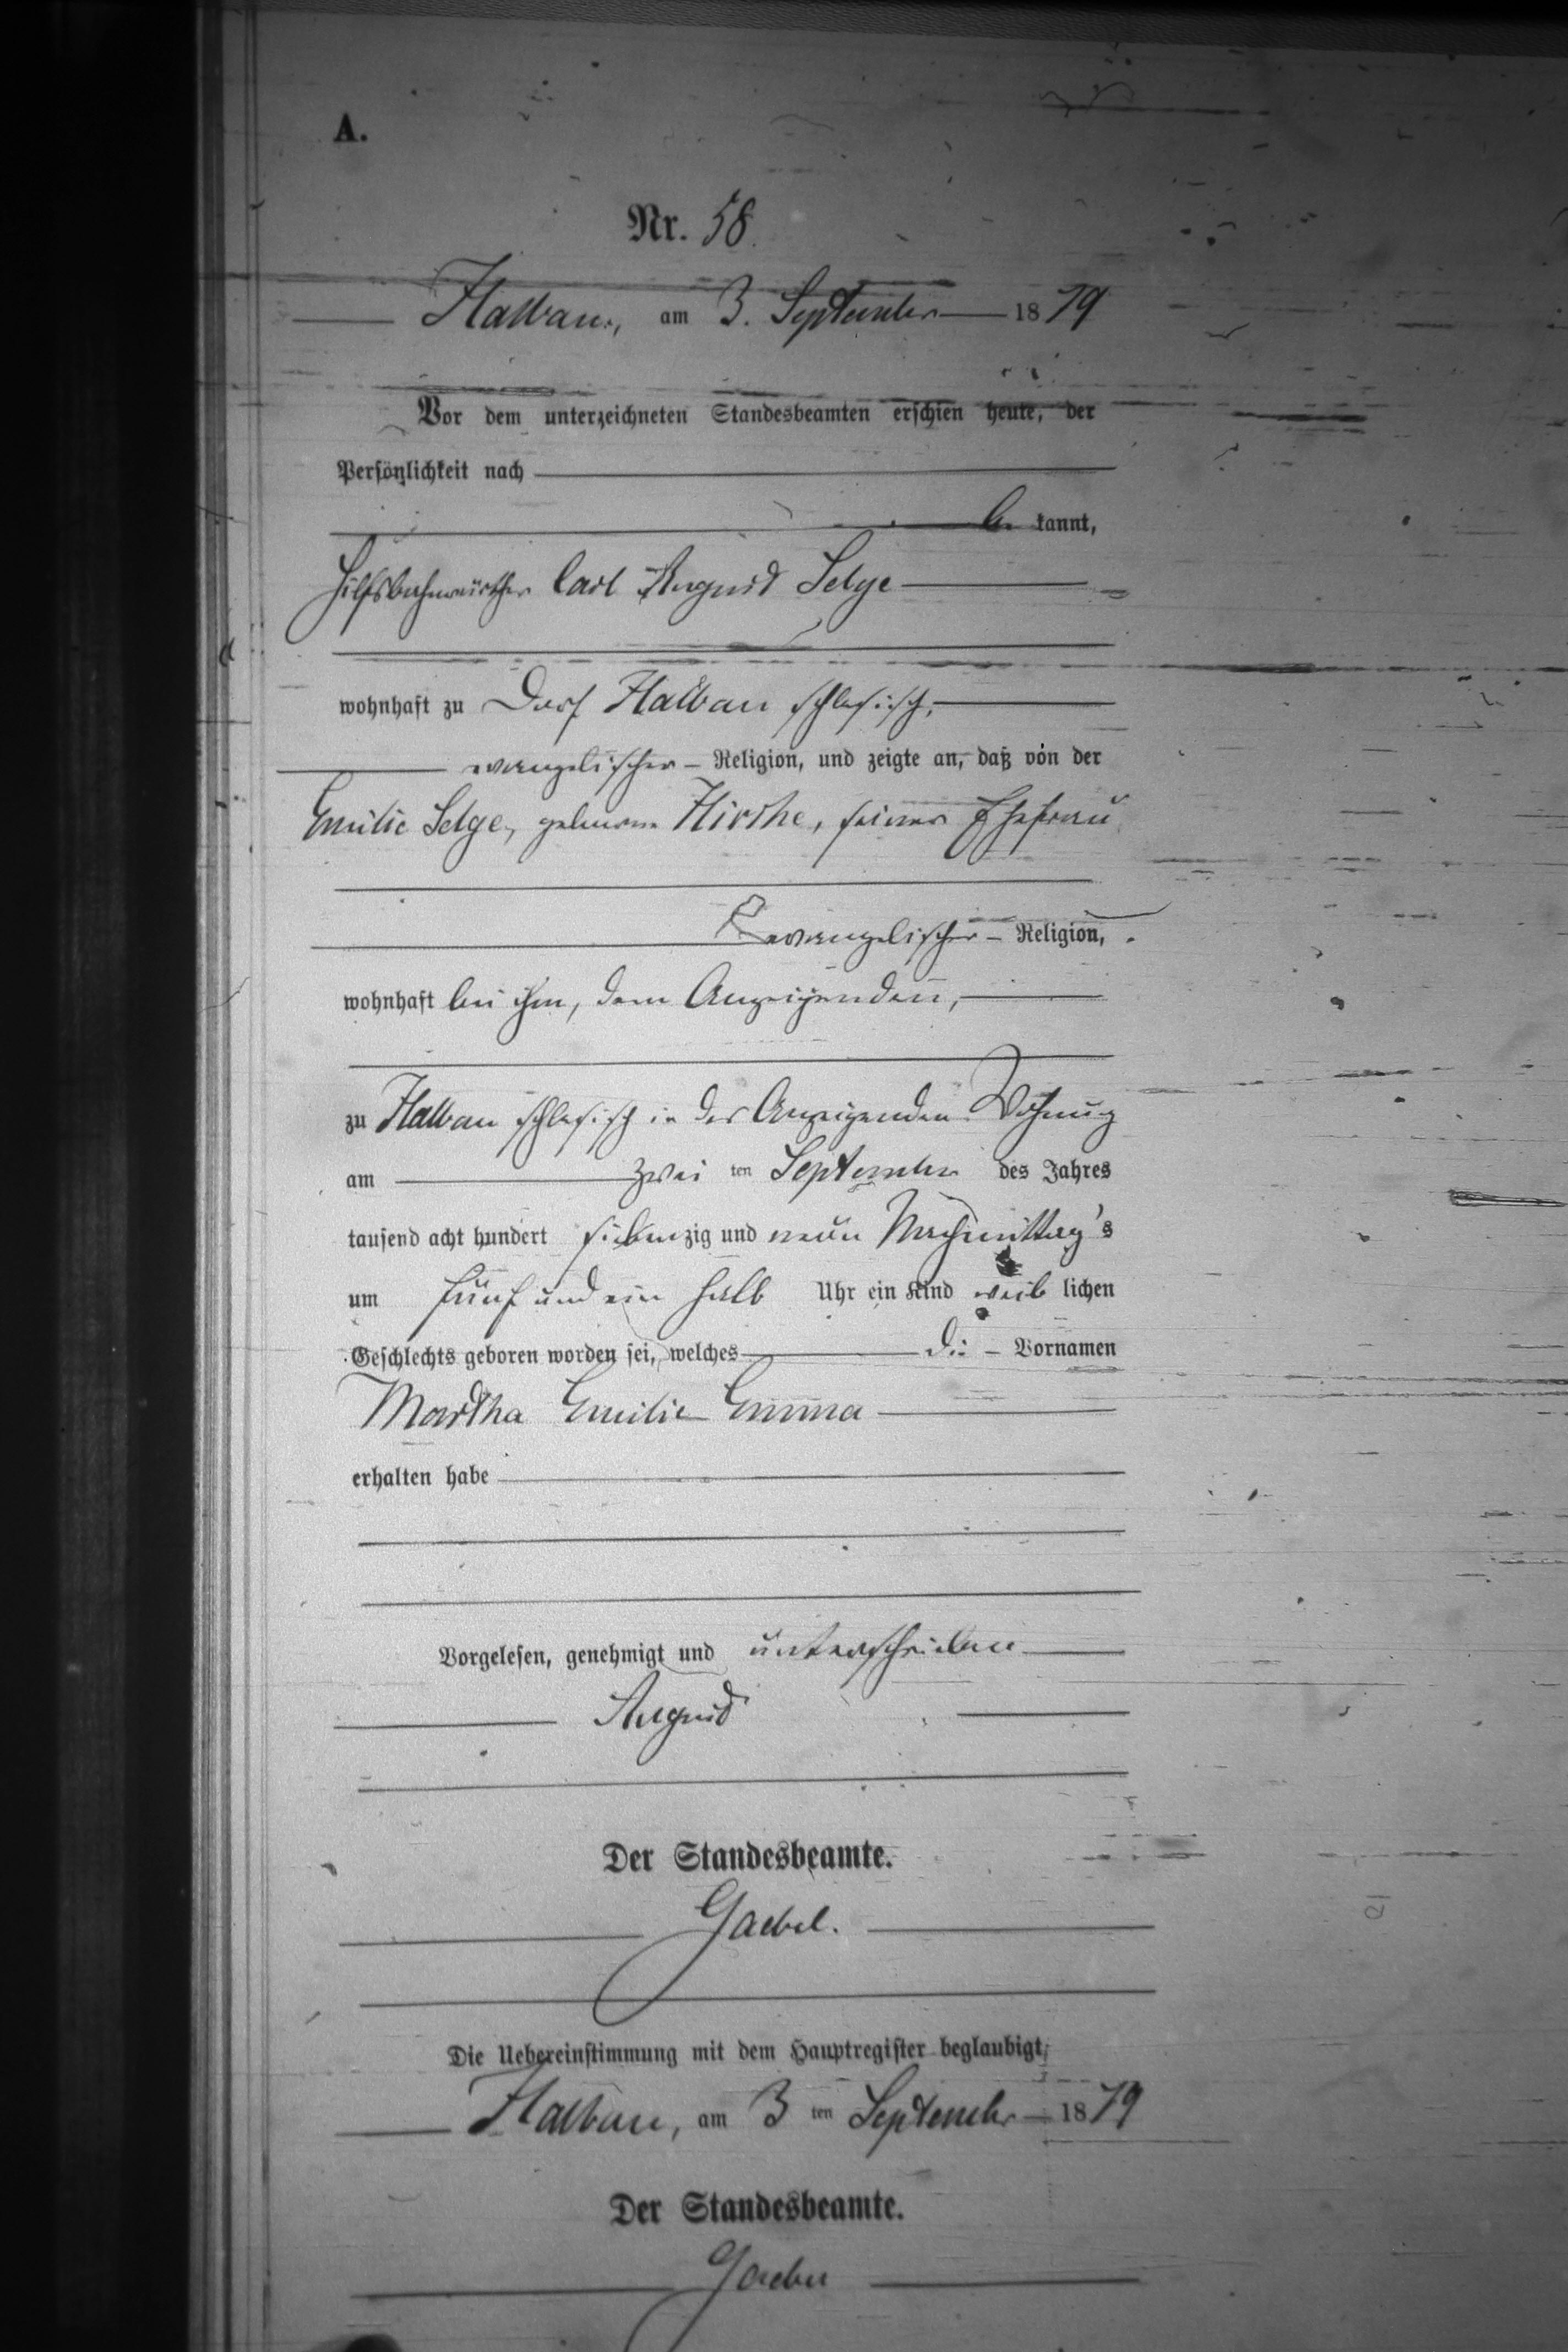 A.
Nr. 58.
Halbau, am 3. September 1879
Vor dem unterzeichneten Standesbeamten erschien heute, der
Persönlichkeit nach
be kannt,
Hilfsbahnwärther Carl August Selge
wohnhaft zu Dorf Halbau schlesisch,
evangelischer Religion, und zeigte an, daß von der
Emilie Selge, geborne Hirche, seiner Ehefrau
evangelischer Religion,
wohnhaft bei ihm, dem Anzeigenden,
zu Halbau schlesisch in des Anzeigenden Wohnung
am zwei ten September des Jahres
tausend acht hundert siebenzig und neun Nachmittag's
um fünf und ein halb Uhr ein Kind weib lichen
Geschlechts geboren worden sei, welches die Vornamen
Martha Emilie Emma
erhalten habe
Vorgelesen, genehmigt und unterschrieben
August
Der Standesbeamte.
Gaebel.
Die Uebereinstimmung mit dem Hauptregister beglaubigt
Halbau, am 3 ten September 1879
Der Standesbeamte.
Gaebel